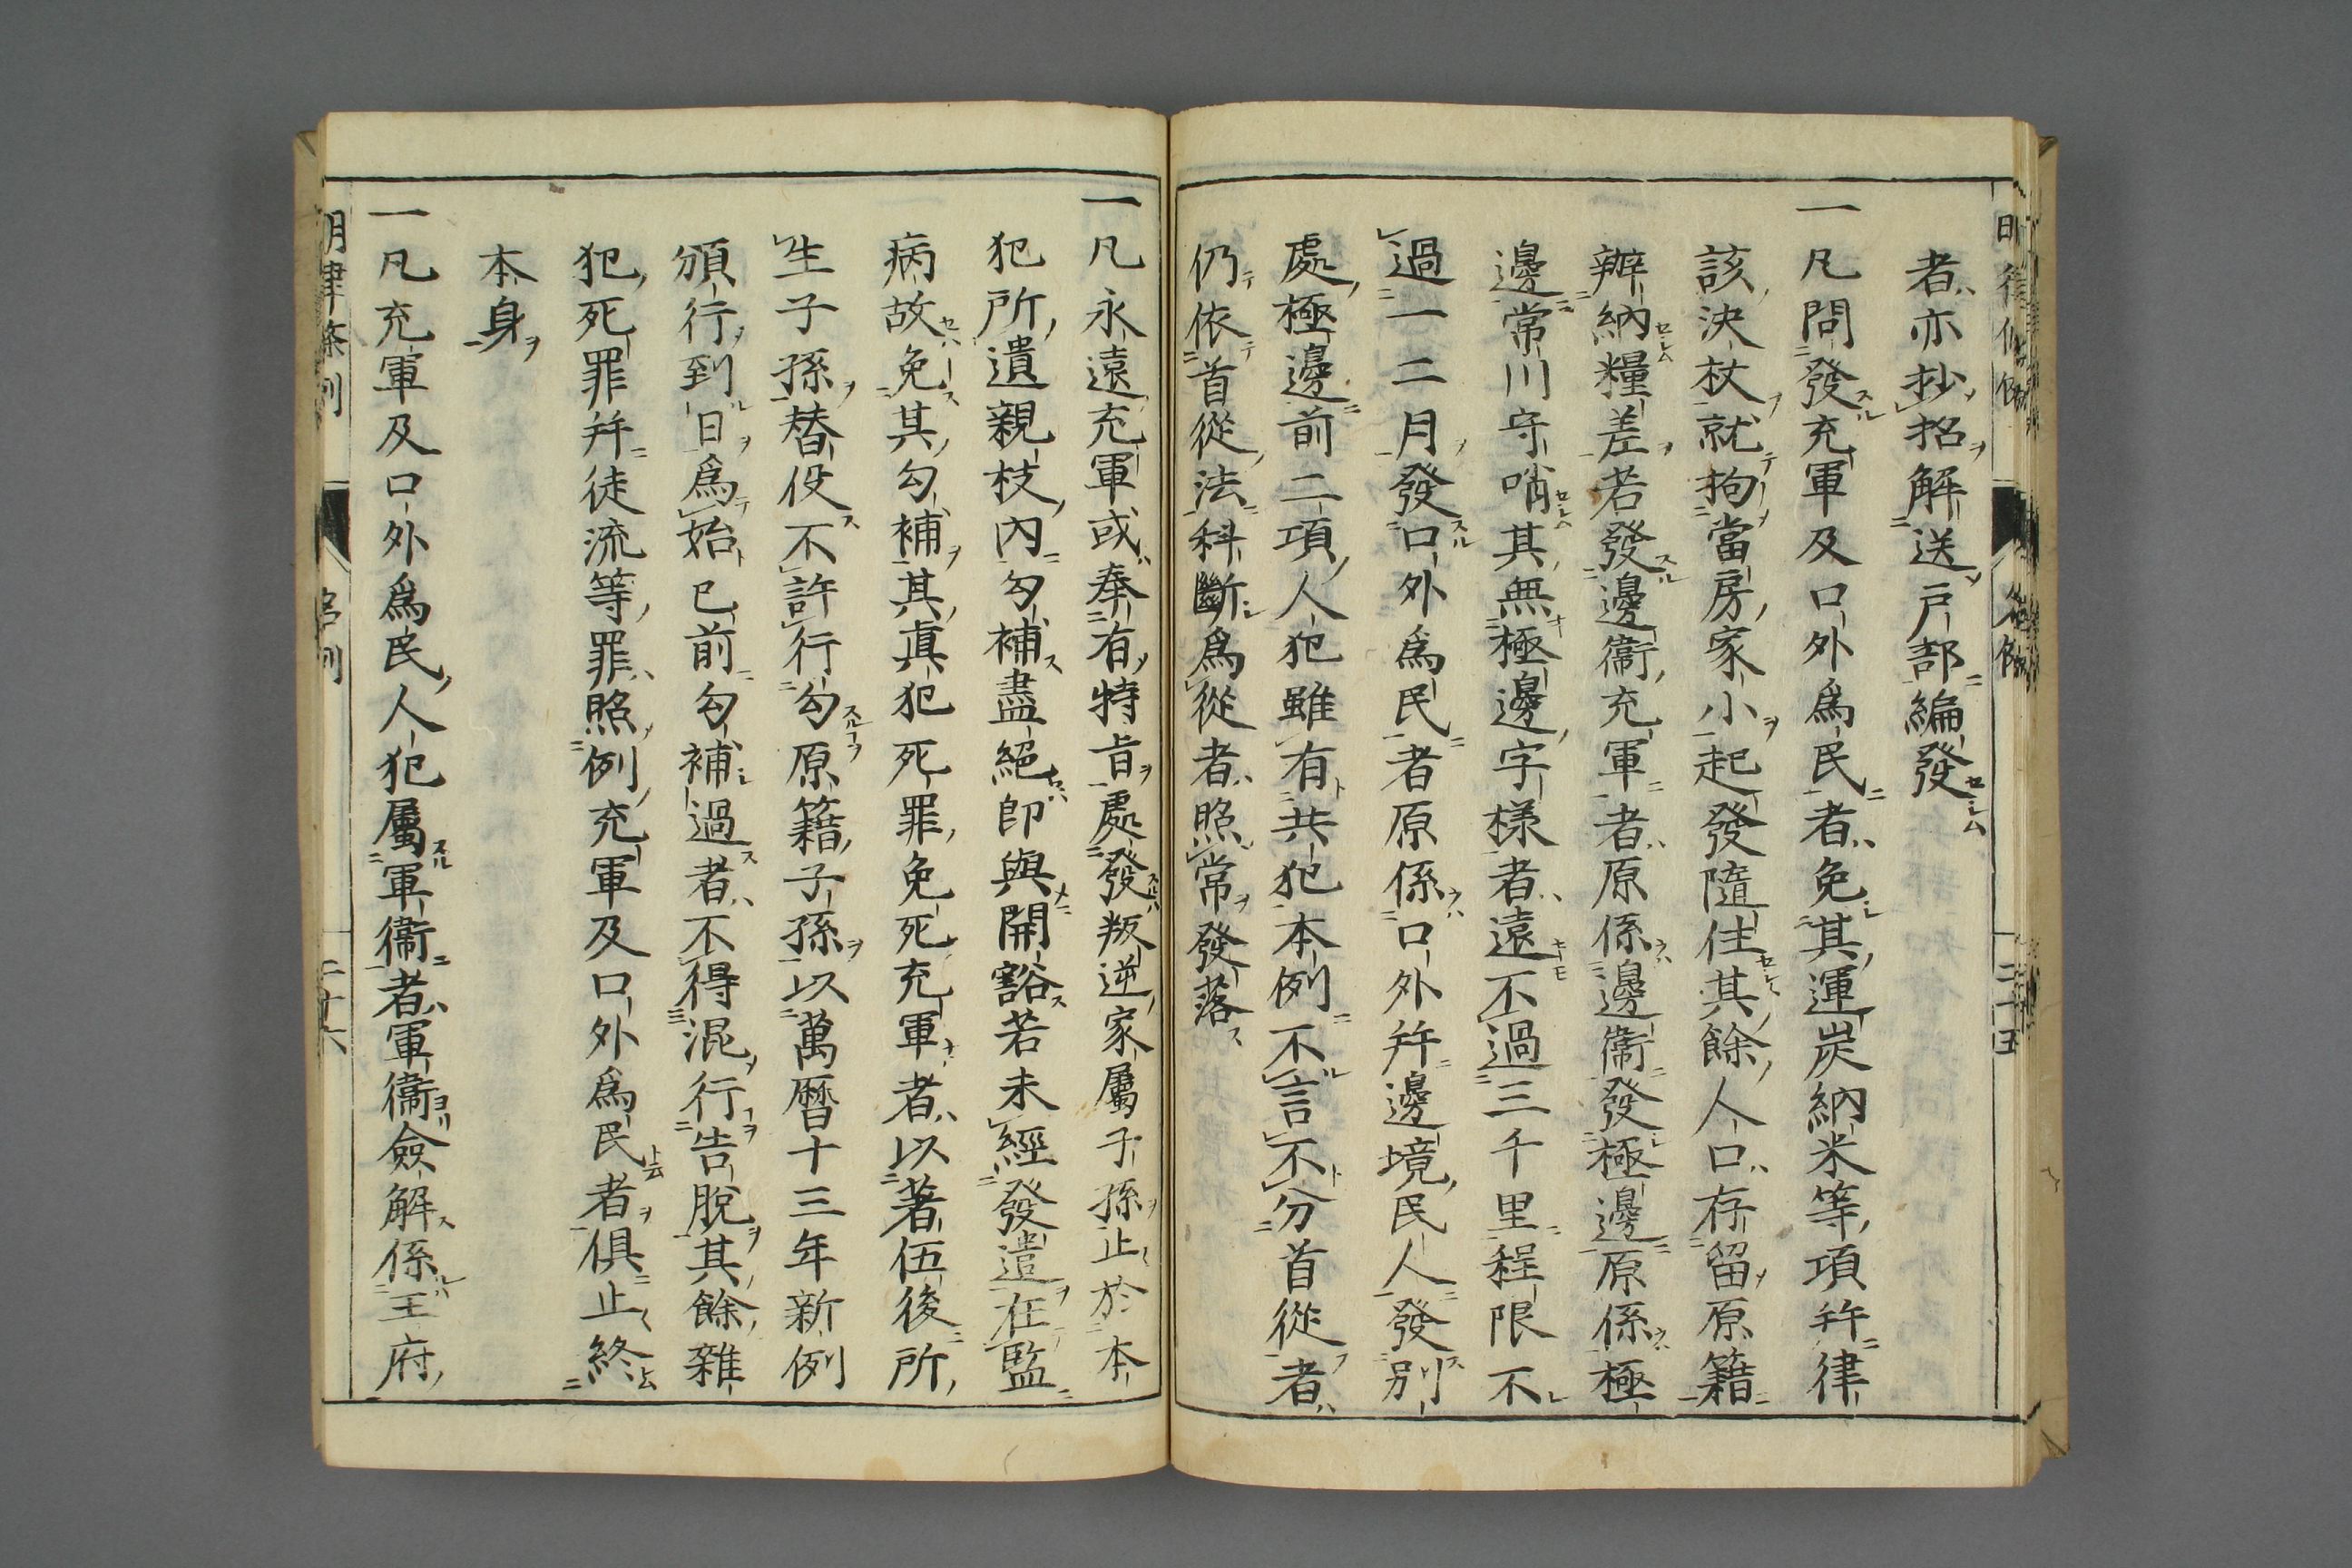 者亦抄招解送戸部編發
一凡問發充軍及口外爲民者免其運炭納米等項幷律
該决杖就拘當房家小起發隨住其餘人口存留原籍
辦納糧差若發邊衞充軍者原係邊衞發極邊原係極
邊常川守哨其無極邊字樣者遠不過三千里程限不
過一二月發口外爲民者原係口外幷邊境民人發別
處極邊前二項人犯雖有共犯本例不言不分首從者
仍依首從法科斷爲從者照常發落
一凡永遠充軍或奉有特旨處發叛逆家屬子孫止於本
犯所遺親枝內勾補盡絕卽與開豁若未經發遣在監
病故免其勾補其眞犯死罪免死充軍者以著伍後所
生子孫替役不許行勾原籍子孫以萬曆十三年新例
頒行到日爲始已前勾補過者不得混行告脫其餘雜
犯死罪幷徒流等罪照例充軍及口外爲民者俱止終
本身
一凡充軍及口外爲民人犯屬軍衞者軍衞僉解係王府
明律條例
名例
二十六